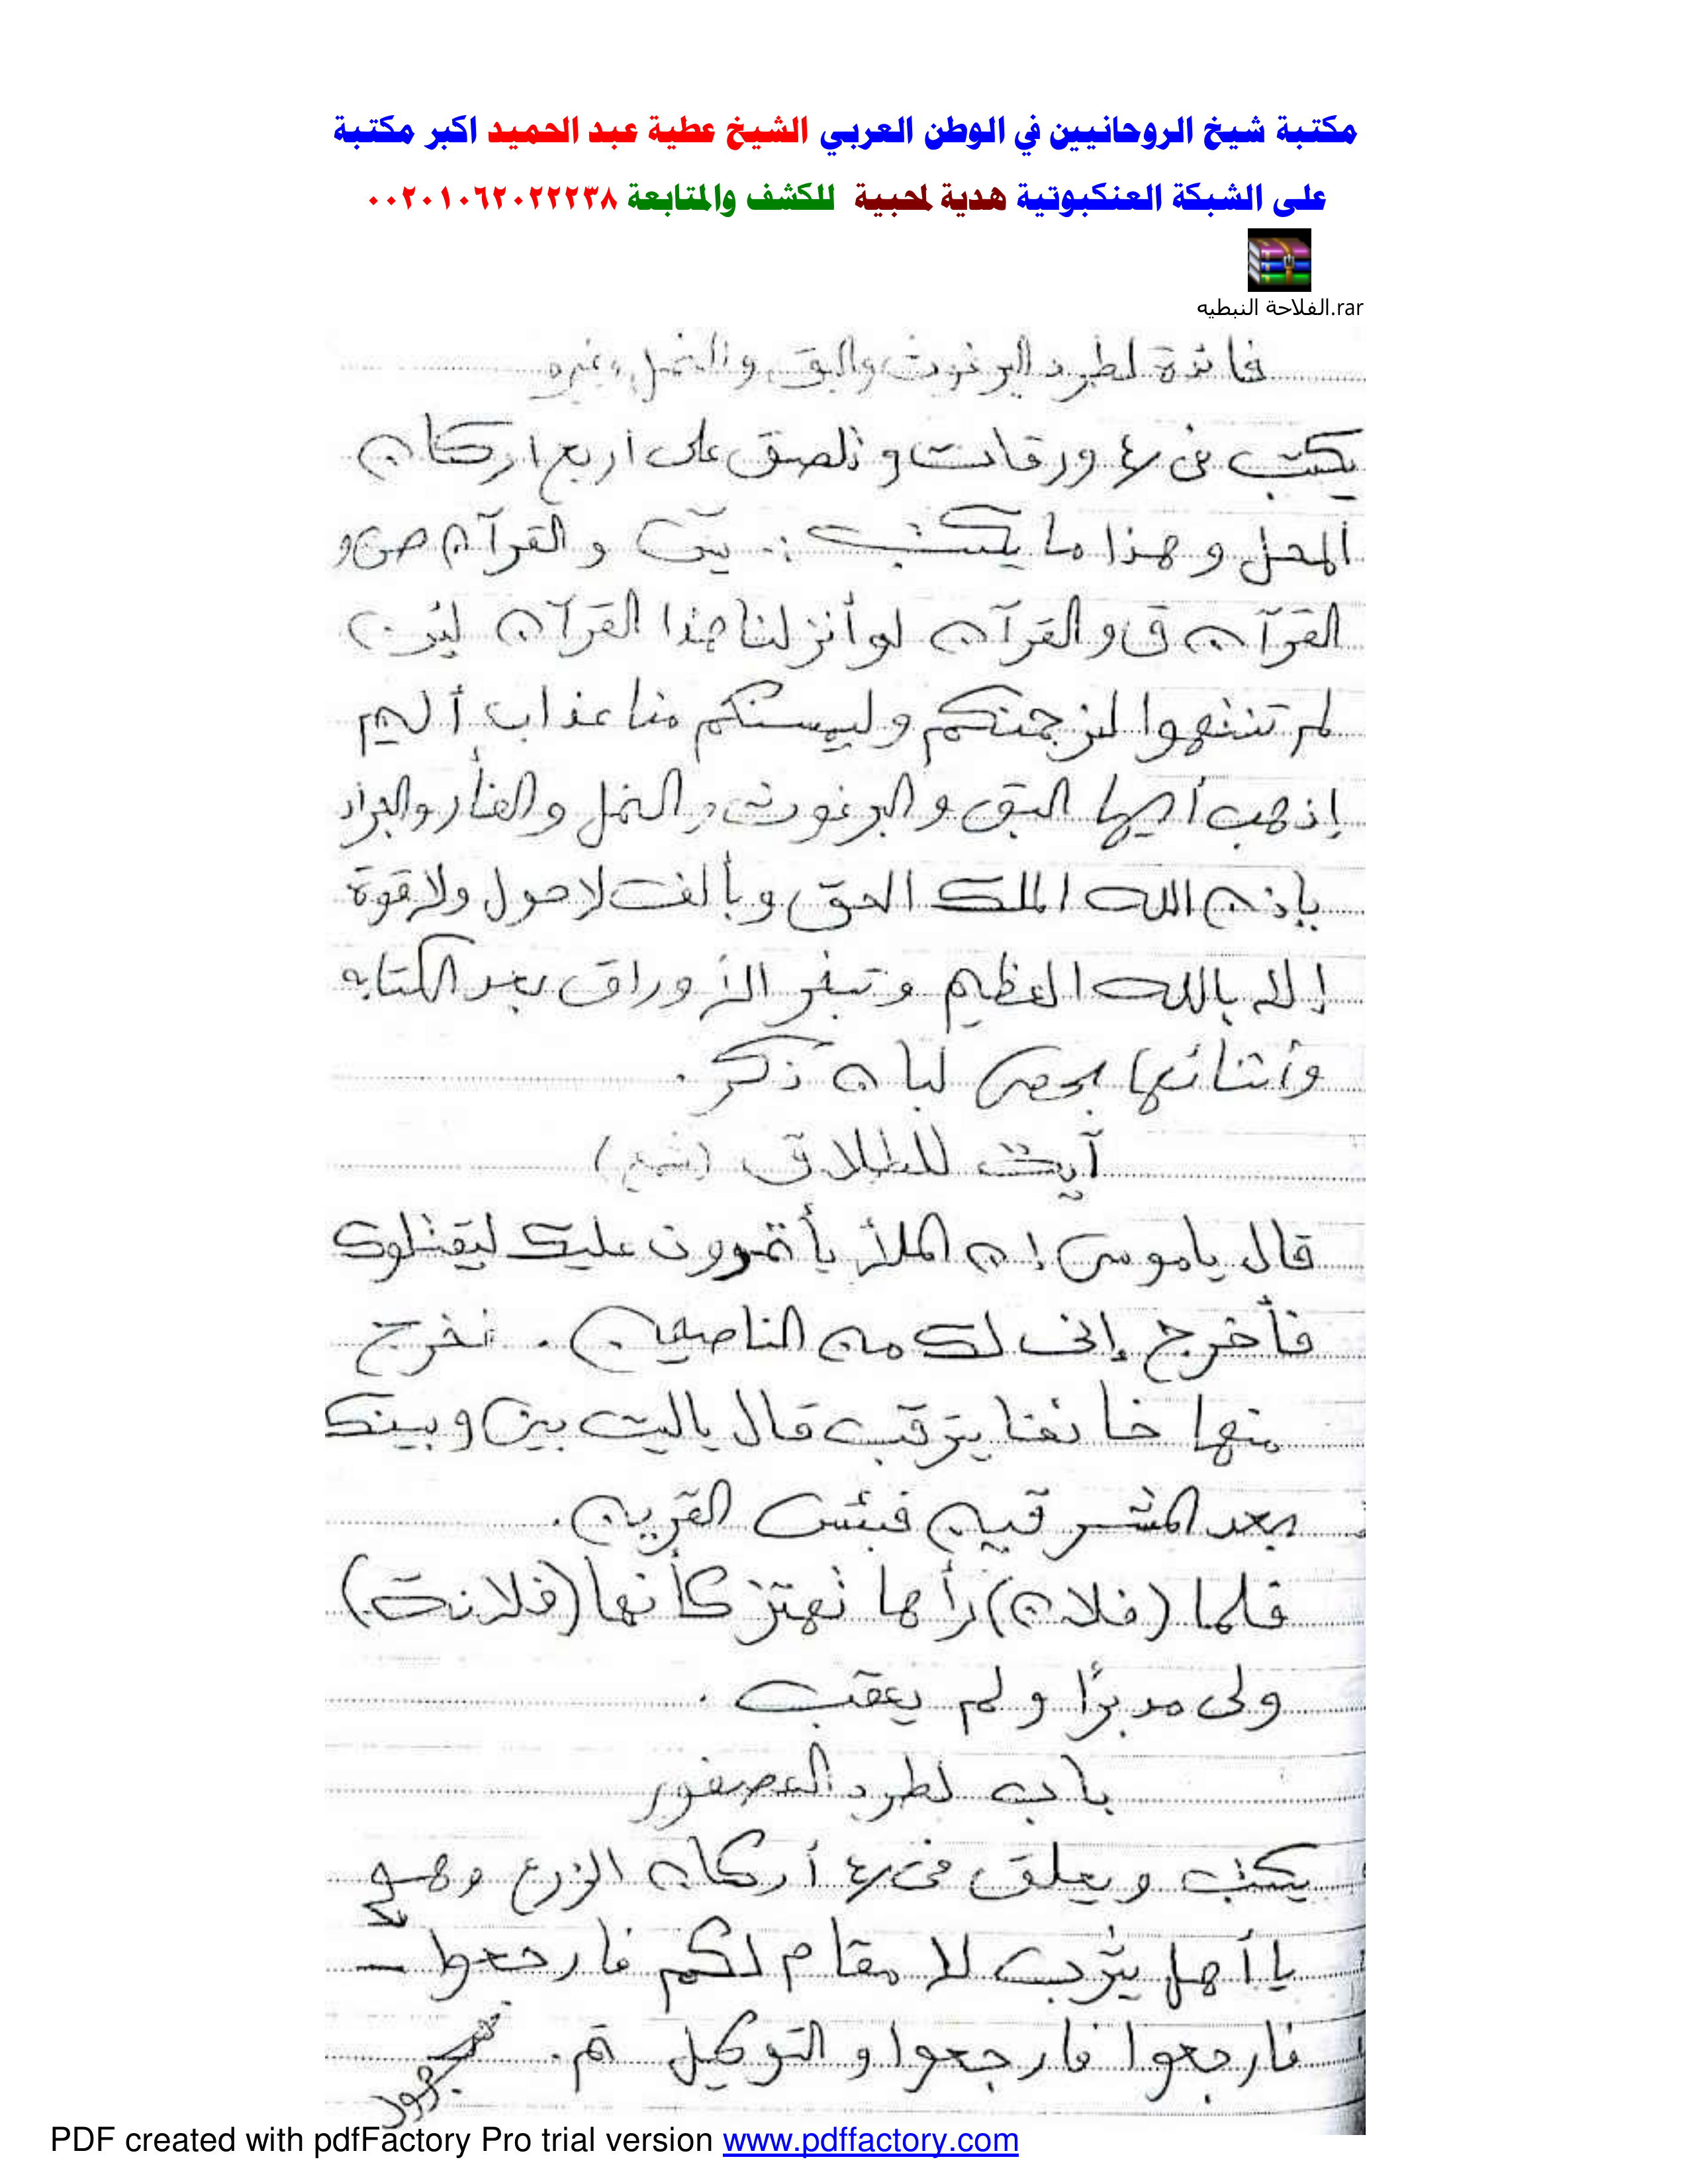 مكتبة شيخ الروحانيين في الوطن العربي الشيخ عطية عبد الحميد اكبر مكتبة
على الشبكة العنكبوتية هدية لمحبية للكشف والمتابعة ٠٠٢٠١٠٦٢٠٢٢٢٣٨
الفلاحة النبطيه.rar
فائدة لطرد البرغوث والبق والنمل وغيره
يكتب فى ٤ ورقات وتلصق على أربع اركان
المحل وهذا ما يكتب :- يس والقرآن ص و
القرآن ق والقرآن لو أنزلنا هذا القرآن لئن
لم تنتهوا لنرجمنكم وليمسنكم منا عذاب أليم
إذهب أيها البق والبرغوث والنمل والفأر والجراد
بإذن الله الملك الحق وبألف لا حول ولا قوة
إلا بالله العظيم وتبخر الأوراق بعد الكتابه
وأثنائها بحصى لبان ذكر .
آيت للطلاق
قال ياموسى إن الملأ يأتمرون عليك ليقتلوك
فأخرج إنى لك من الناصحين . فخرج
منها خائفا يترقب قال ياليت بينى وبينك
بعد المشرقين فبئس القرين .
فلما (فلان) رأها تهتز كأنها (فلانت)
ولى مدبرًا ولم يعقب .
باب لطرد العصفور
يكتب ويعلق فى ٤ أركان الزرع وهو
يا أهل يثرب لا مقام لكم فارجعوا
فارجعوا فارجعوا والتوكيل تم .
PDF created with pdfFactory Pro trial version www.pdffactory.com